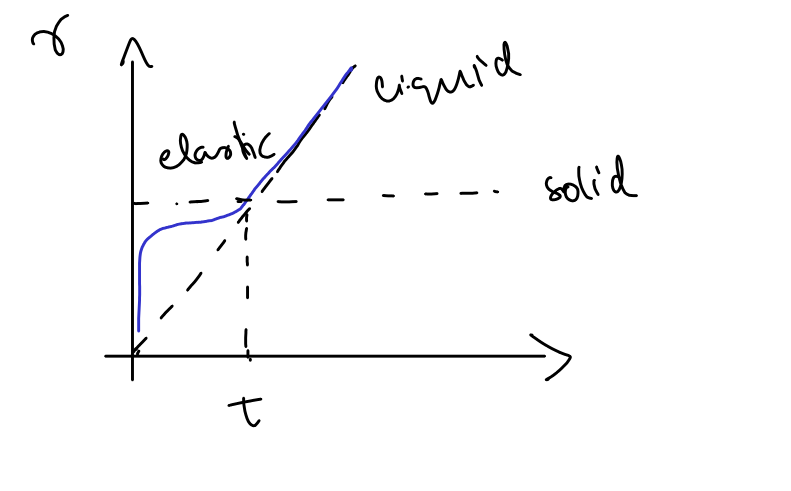 γ
liquid
elastic
solid
τ